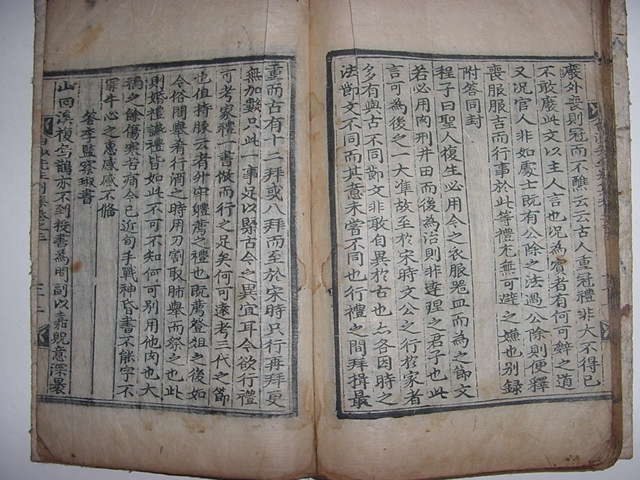 廢外喪則冠而不醮云云古人重冠禮非大不得已
不敢廢此文以主人言也况為賓者有何可辭之道
又况官人非如處士既有公除之法過公除則便釋
喪服服吉而行事於此等禮尤無可避之嫌也別錄
附答同封
程子曰聖人復生必用今之衣服器皿而為之節文
若必用肉刑井田而後為治則非達理之君子也此
言可為後之一大準故至於宋時文公之行於家者
多有與古不同節文非敢自異於古也亦各因時之
法節文不同而其意未嘗不同也行禮之間拜揖最
重而古有十二拜或八拜而至於宋時只行再拜更
無加數只此一事足以歸古今之異宜耳今欲行禮
可考家禮一書倣而行之足矣何可遠考三代之節
也值持豚云者外中軆薦之禮也既薦登俎之後如
今俗間舉肴行酒之時用刀割取肺舉而祭之也此
則婚禮醮禮皆如此不可不知何可別用他肉也大
禍之餘傷寒若痛今已近旬手戰神昏書不能字不
罪牛心之惠感感不備
答李監察琡書
山回溪複宅鵲亦不到投書為明副以嘉貺意深曷